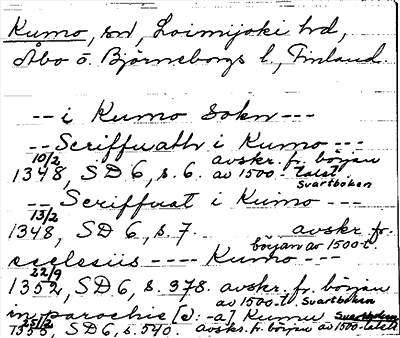 Kumo, sn, Loimijoki hd,
Åbo o. Björneborgs l., Finland.
-- i Kumo Sokn ---
-- Scriffwath i Kumo ---
10/2 1348, SD 6, s. 6. avskr. fr. början av 1500-talet Svartboken
-- Scriffuat i Kumo ---
13/2 1348, SD 6, s. 7. avskr. fr. början av 1500-t.
ecclesiis ---- Kumo ---
22/9 1352, SD 6, s. 378. avskr. fr. början av 1500-t. Svartboken
in parochie [o: -a] Kumu Svartboken
1355, SD 6, s. 540. avskr. fr. början av 1500-talet